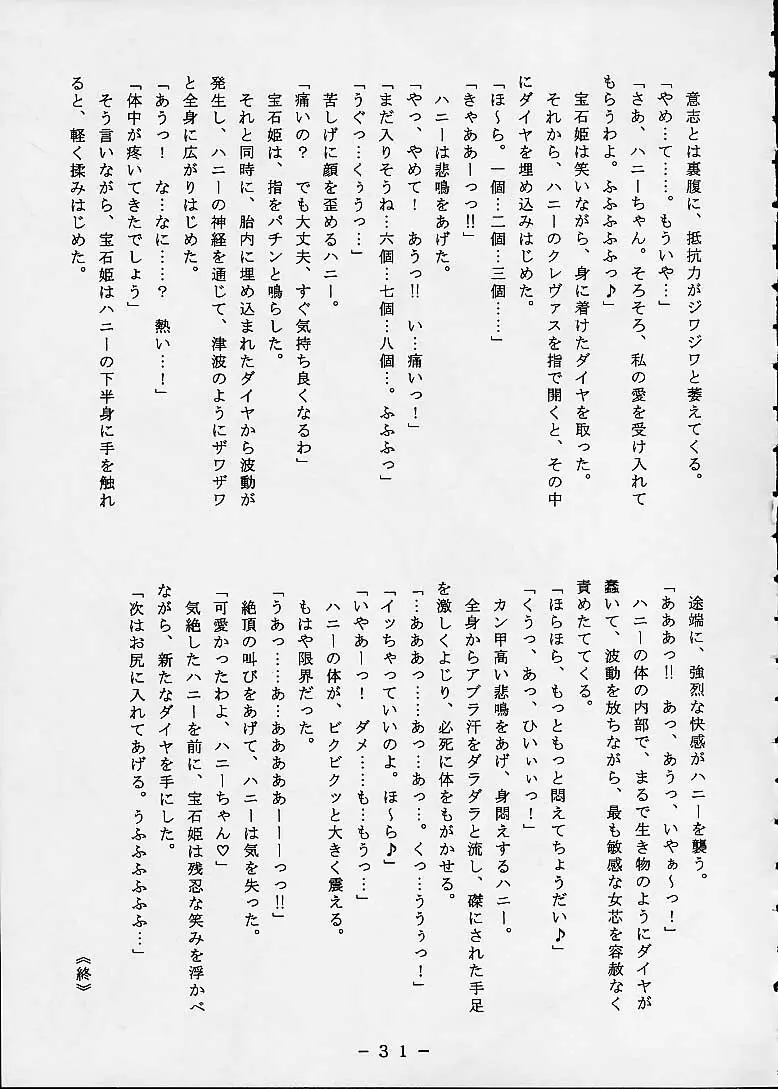 意志とは裏腹に、抵抗力がジワジワと萎えてくる。
「やめ…て……。もういや…」
「さあ、ハニーちゃん。そろそろ、私の愛を受け入れて
もらうわよ。ふふふふふっ♪」
宝石姫は笑いながら、身に着けたダイヤを取った。
それから、ハニーのクレヴァスを指で開くと、その中
にダイヤを埋め込みはじめた。
「ほ～ら。一個…二個…三個……」
「きゃああーっっ!!」
ハニーは悲鳴をあげた。
「やっ、やめて！　あうっ!!　い…痛いっ！」
「まだ入りそうね…六個…七個…八個…。ふふふっ」
「うぐっ…くぅうっ…」
苦しげに顔を歪めるハニー。
「痛いの？　でも大丈夫、すぐ気持ち良くなるわ」
宝石姫は、指をパチンと鳴らした。
それと同時に、胎内に埋め込まれたダイヤから波動が
発生し、ハニーの神経を通じて、津波のようにザワザワ
と全身に広がりはじめた。
「あうっ！　な…なに……？　熱い…！」
「体中が疼いてきたでしょう」
そう言いながら、宝石姫はハニーの下半身に手を触れ
ると、軽く揉みはじめた。
途端に、強烈な快感がハニーを襲う。
「あああっ!!　あっ、あうっ、いやぁ～っ！」
ハニーの体の内部で、まるで生き物のようにダイヤが
蠢いて、波動を放ちながら、最も敏感な女芯を容赦なく
責めたてくる。
「ほらほら、もっともっと悶えてちょうだい♪」
「くうっ、あっ、ひいぃぃっ！」
カン甲高い悲鳴をあげ、身悶えするハニー。
全身からアブラ汗をダラダラと流し、磔にされた手足
を激しくよじり、必死に体をもがかせる。
「…あああっ……あっ…あっ…。くっ…うううっ！」
「イッちゃっていいのよ。ほ～ら♪」
「いやあーっ！　ダメ……も…もうっ…」
ハニーの体が、ビクビクッと大きく震える。
もはや限界だった。
「うあっ……あ…あああああーーーっっ!!」
絶頂の叫びをあげて、ハニーは気を失った。
「可愛かったわよ、ハニーちゃん♡」
気絶したハニーを前に、宝石姫は残忍な笑みを浮かべ
ながら、新たなダイヤを手にした。
「次はお尻に入れてあげる。うふふふふふふ…」
《終》
-３１-